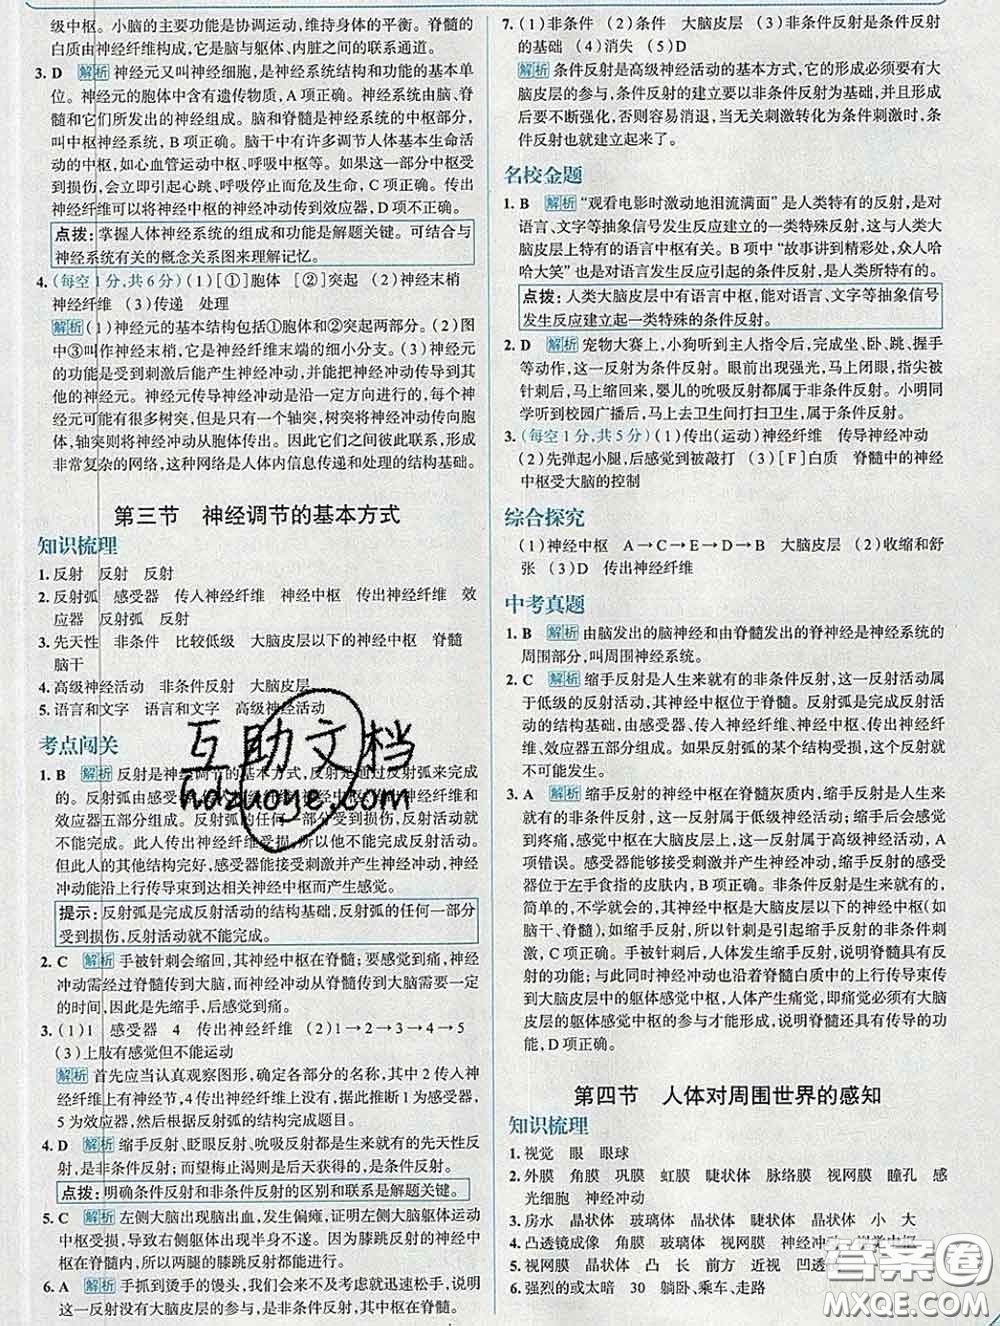 级中枢。小脑的主要功能是协调运动、维持身体的平衡。脊髓的
白质由神经纤维构成,它是脑与躯体、内脏之间的联系通道。
3. D 解析 神经元又叫神经细胞,是神经系统结构和功能的基本单
位。神经元的胞体中含有遗传物质,A项正确。神经系统由脑、脊
髓和它们所发出的神经组成。脑和脊髓是神经系统的中枢部分,
叫中枢神经系统,B项正确。脑干中有许多调节人体基本生命活
动的中枢,如心血管运动中枢、呼吸中枢等。如果这一部分中枢受
到损伤,会立即引起心跳、呼吸停止而危及生命,C项正确。传出
神经纤维可以将神经中枢的神经冲动传到效应器,D项不正确。
点拨:掌握人体神经系统的组成和功能是解题关键。可结合与
神经系统有关的概念关系图来理解记忆。
4. (每空1分,共6分)(1)[①]胞体 [②]突起 (2)神经末梢
神经纤维 (3)传递 处理
解析 (1)神经元的基本结构包括①胞体和②突起两部分。(2)图
中③叫作神经末梢,它是神经纤维末端的细小分支。(3)神经元
的功能是受到刺激后能产生神经冲动,并能把神经冲动传导到其
他的神经元。神经元传导神经冲动是沿一定方向进行的,每个神
经元可能有很多树突,但只有一个轴突,树突将神经冲动传向胞
体,轴突则将神经冲动从胞体传出。因此它们之间彼此联系,形成
非常复杂的网络,这种网络是人体内信息传递和处理的结构基础。
第三节 神经调节的基本方式
知识梳理
1. 反射 反射 反射
2. 反射弧 感受器 传入神经纤维 神经中枢 传出神经纤维 效
应器 反射弧 反射
3. 先天性 非条件 比较低级 大脑皮层以下的神经中枢 脊髓
脑干
4. 高级神经活动 非条件反射 大脑皮层
5. 语言和文字 语言和文字 高级神经活动
考点闯关
1. B 解析 反射是神经调节的基本方式,反射是通过反射弧来完成
的。反射弧由感受器、传入神经纤维、神经中枢、传出神经纤维和
效应器五部分组成。反射弧的任何一部分受到损伤,反射活动就
不能完成。此人传出神经纤维受损,所以他不能完成反射活动。
但此人的其他结构完好,感受器能接受刺激并产生神经冲动,神经
冲动能沿上行传导束到达相关神经中枢而产生感觉。
提示:反射弧是完成反射活动的结构基础,反射弧的任何一部分
受到损伤,反射活动就不能完成。
2. C 解析 手被针刺会缩回,其神经中枢在脊髓;要感觉到痛,神经
冲动需经过脊髓传到大脑,而神经冲动从脊髓传到大脑需要一定
的时间,因此是先缩手,后感觉到痛。
3. (1)1 感受器 4 传出神经纤维 (2)1→2→3→4→5
(3)上肢有感觉但不能运动
解析 首先应当认真观察图形,确定各部分的名称,其中2传入神
经纤维上有神经节,4传出神经纤维上没有,据此推断1为感受器,
5为效应器,然后根据反射弧的结构完成题目。
4. D 解析 缩手反射、眨眼反射、吮吸反射都是生来就有的先天性反
射,是非条件反射;而望梅止渴则是后天获得的,属于条件反射。
点拨:明确条件反射和非条件反射的区别和联系是解题关键。
5. C 解析 左侧大脑出现脑出血,发生偏瘫,证明左侧大脑躯体运动
中枢受损,导致右侧躯体出现半身不遂。因为膝跳反射的神经中
枢在脊髓,所以两腿的膝跳反射都能进行。
6. A 解析 手抓到烫手的馒头,我们会来不及迅速松手,说明
这一反射有大脑皮层的参与,是条件反射,其神经中枢在脊髓。
7. (1)非条件 (2)条件 大脑皮层 (3)非条件反射是条件反射
的基础 (4)消失 (5)D
解析 条件反射是高级神经活动的基本方式,它的形成必须要有大
脑皮层的参与,条件反射的建立要以非条件反射为基础,并且形成
后要不断强化,否则容易消退,当无关刺激转化为条件刺激时,条
件反射也就建立起来了。
名校金题
1. B 解析 “观看电影时激动地泪流满面”是人类特有的反射,是对
语言、文字等抽象信号发生反应建立的一类特殊的条件反射,与人
类大脑皮层上特有的语言中枢有关。B项中“故事讲到精彩处,众人哈
哈大笑”也是对语言发生反应引起的条件反射,是人类所特有的。
点拨:人类大脑皮层中有语言中枢,能对语言、文字等抽象信号
发生反应建立起一类特殊的条件反射。
2. D 解析 宠物大赛上,小狗听到主人指令后,完成坐、卧、跳、握手
等动作,这一反射为条件反射。眼前出现强光,马上闭眼,指尖被
针刺后,马上缩回来,婴儿的吮吸反射都属于非条件反射。小明同
学听到校园广播后,马上去卫生间打扫卫生,属于条件反射。
3. (每空1分,共5分)(1)传出(运动)神经纤维 传导神经冲动
(2)先弹起小腿,后感觉到被敲打 (3)[F]白质 脊髓中的神经
中枢受大脑的控制
综合探究
(1)神经中枢 A→C→E→D→B 大脑皮层 (2)收缩和舒
张 (3)D 传出神经纤维
中考真题
1. B 解析 由脑发出的脑神经和由脊髓发出的脊神经是神经系统的
周围部分,叫周围神经系统。
2. C 解析 缩手反射是人生来就有的非条件反射,这一反射活动属
于低级的反射活动,其神经中枢位于脊髓。反射弧是完成反射活
动的结构基础,由感受器、传入神经纤维、神经中枢、传出神经纤
维、效应器五部分组成。如果反射弧的某个结构受损,反射活动就
不可能发生。
3. A 解析 缩手反射的神经中枢在脊髓灰质内,这一反射是人生来
就有的非条件反射,属于低级神经活动;而缩手反射后会感觉
到疼痛,感觉中枢在大脑皮层上,这一反射属于高级神经活动,A
项错误。感受器能够接受刺激并产生神经冲动,缩手反射的感受
器位于左手食指的皮肤内,B项正确。非条件反射是生来就有的,
简单的,不学就会的,其神经中枢是大脑皮层以下的神经中枢(如
脑干、脊髓)。如图所示,所以针刺是引起缩手反射的非条件刺
激,C项正确。手被针刺后,人体发生缩手反射,说明脊髓具有反
射的功能;与此同时神经冲动也沿着脊髓白质中的上行传导束传
到大脑皮层中的躯体感觉中枢,人体产生痛觉,即痛觉必须有大脑
皮层的躯体感觉中枢的参与才能形成,说明脊髓还具有传导的功
能,D项正确。
第四节 人体对周围世界的感知
知识梳理
1. 视觉 眼 眼球
2. 外膜 角膜 巩膜 虹膜 睫状体 脉络膜 视网膜 瞳孔 感
光细胞 神经冲动
3. 房水 晶状体 玻璃体 晶状体 睫状体 晶状体 小 大
4. 凸透镜成像 角膜 玻璃体 视网膜 神经冲动 视觉中枢
5. 视网膜 晶状体 凸 长 前方 近视 凹透
6. 强烈的或太暗 30 躺卧、乘车、走路
互助文档
hdzuoye.com
答案圈
MXQE.COM